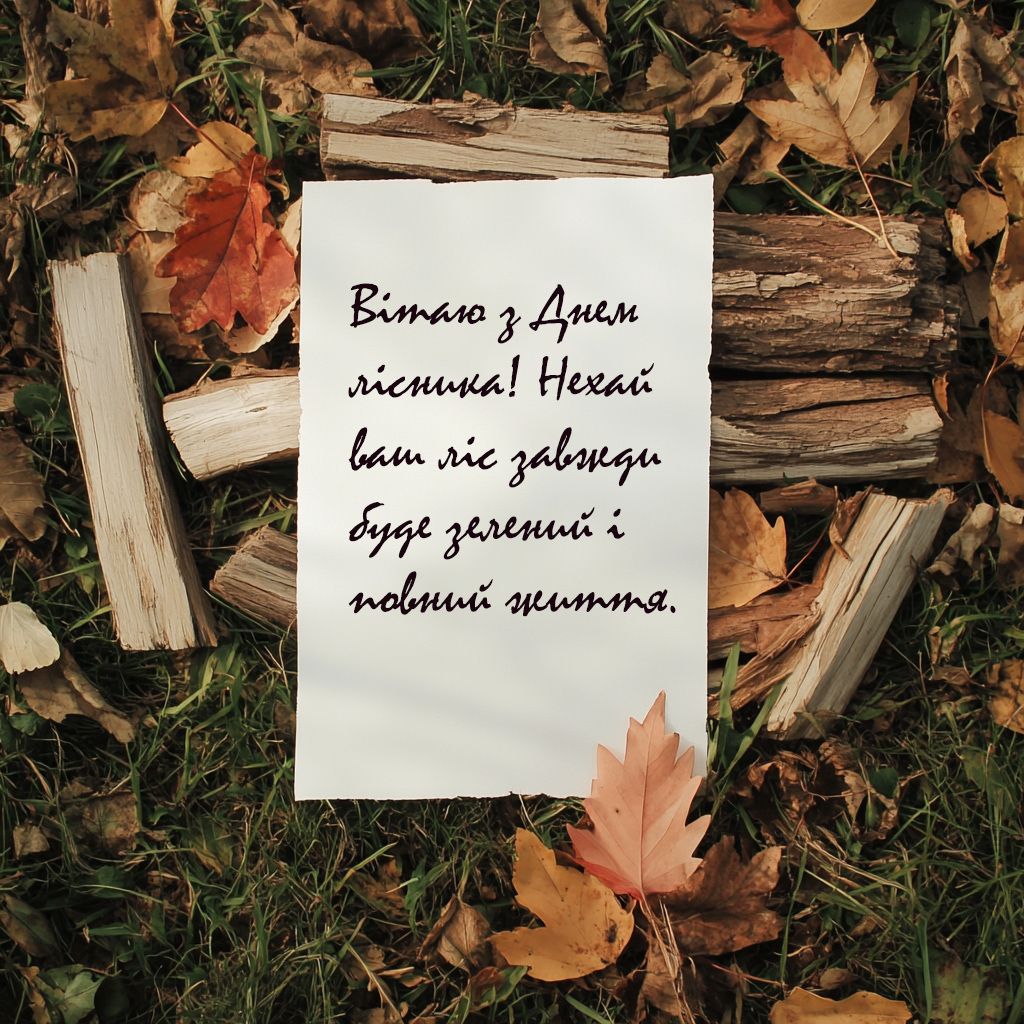 Вітаю з Днем
лісника! Нехай
ваш ліс завжди
буде зелений і
повний життя.